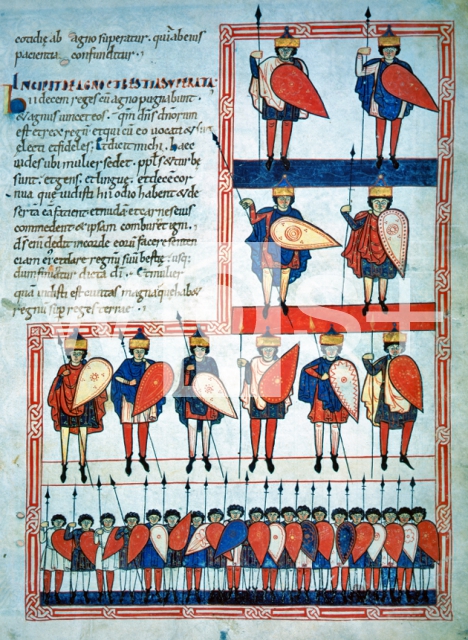 cotidie ab agno superatur. qui ab eius
pacientia confunditur.
INCIPIT DE AGNO ET BESTIA SUPERATA
Hii decem reges cū agno pugnabunt.
& agnus uincet eos. qm̄ dn̄s dn̄orum
est et rex regū et qui cū eo uocati &
electi et fideles. Et dicit michi. haec
uides ubi mulier sedet. ppl̄s & turbe
sunt. et gens. et lingue. et dece cor
nua que uidisti hi odio habent & de
serta eā facient et nudā et carnes eius
commedent & ipsam comburēt igni.
ds̄ eni dedit in corde eoū facere senten
ciam ei et dare regnū suū bestię. usq;
dum finiatur dicta dī. Et mulier
quā uidisti est ciuitas magna que habet
regnū sup reges terrae.